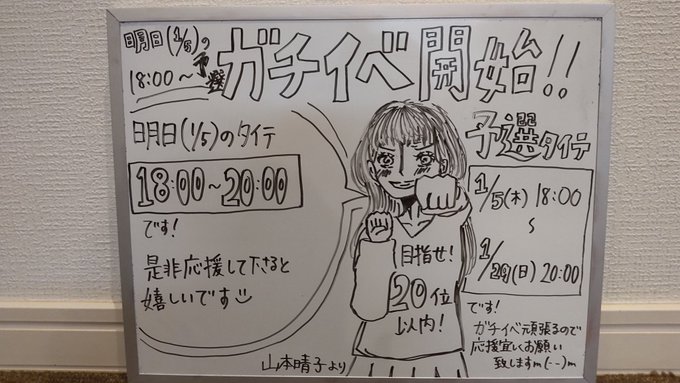 明日(1/5)の
18:00〜予選
ガチイベ開始!!
明日(1/5)のタイテ
18:00〜20:00
です!
是非応援して下さると
嬉しいです
目指せ!
20位
以内!
山本晴子より
予選タイテ
1/5(木) 18:00
〜
1/29(日) 20:00
です!
ガチイベ頑張るので
応援宜しくお願い
致しますm(--)m